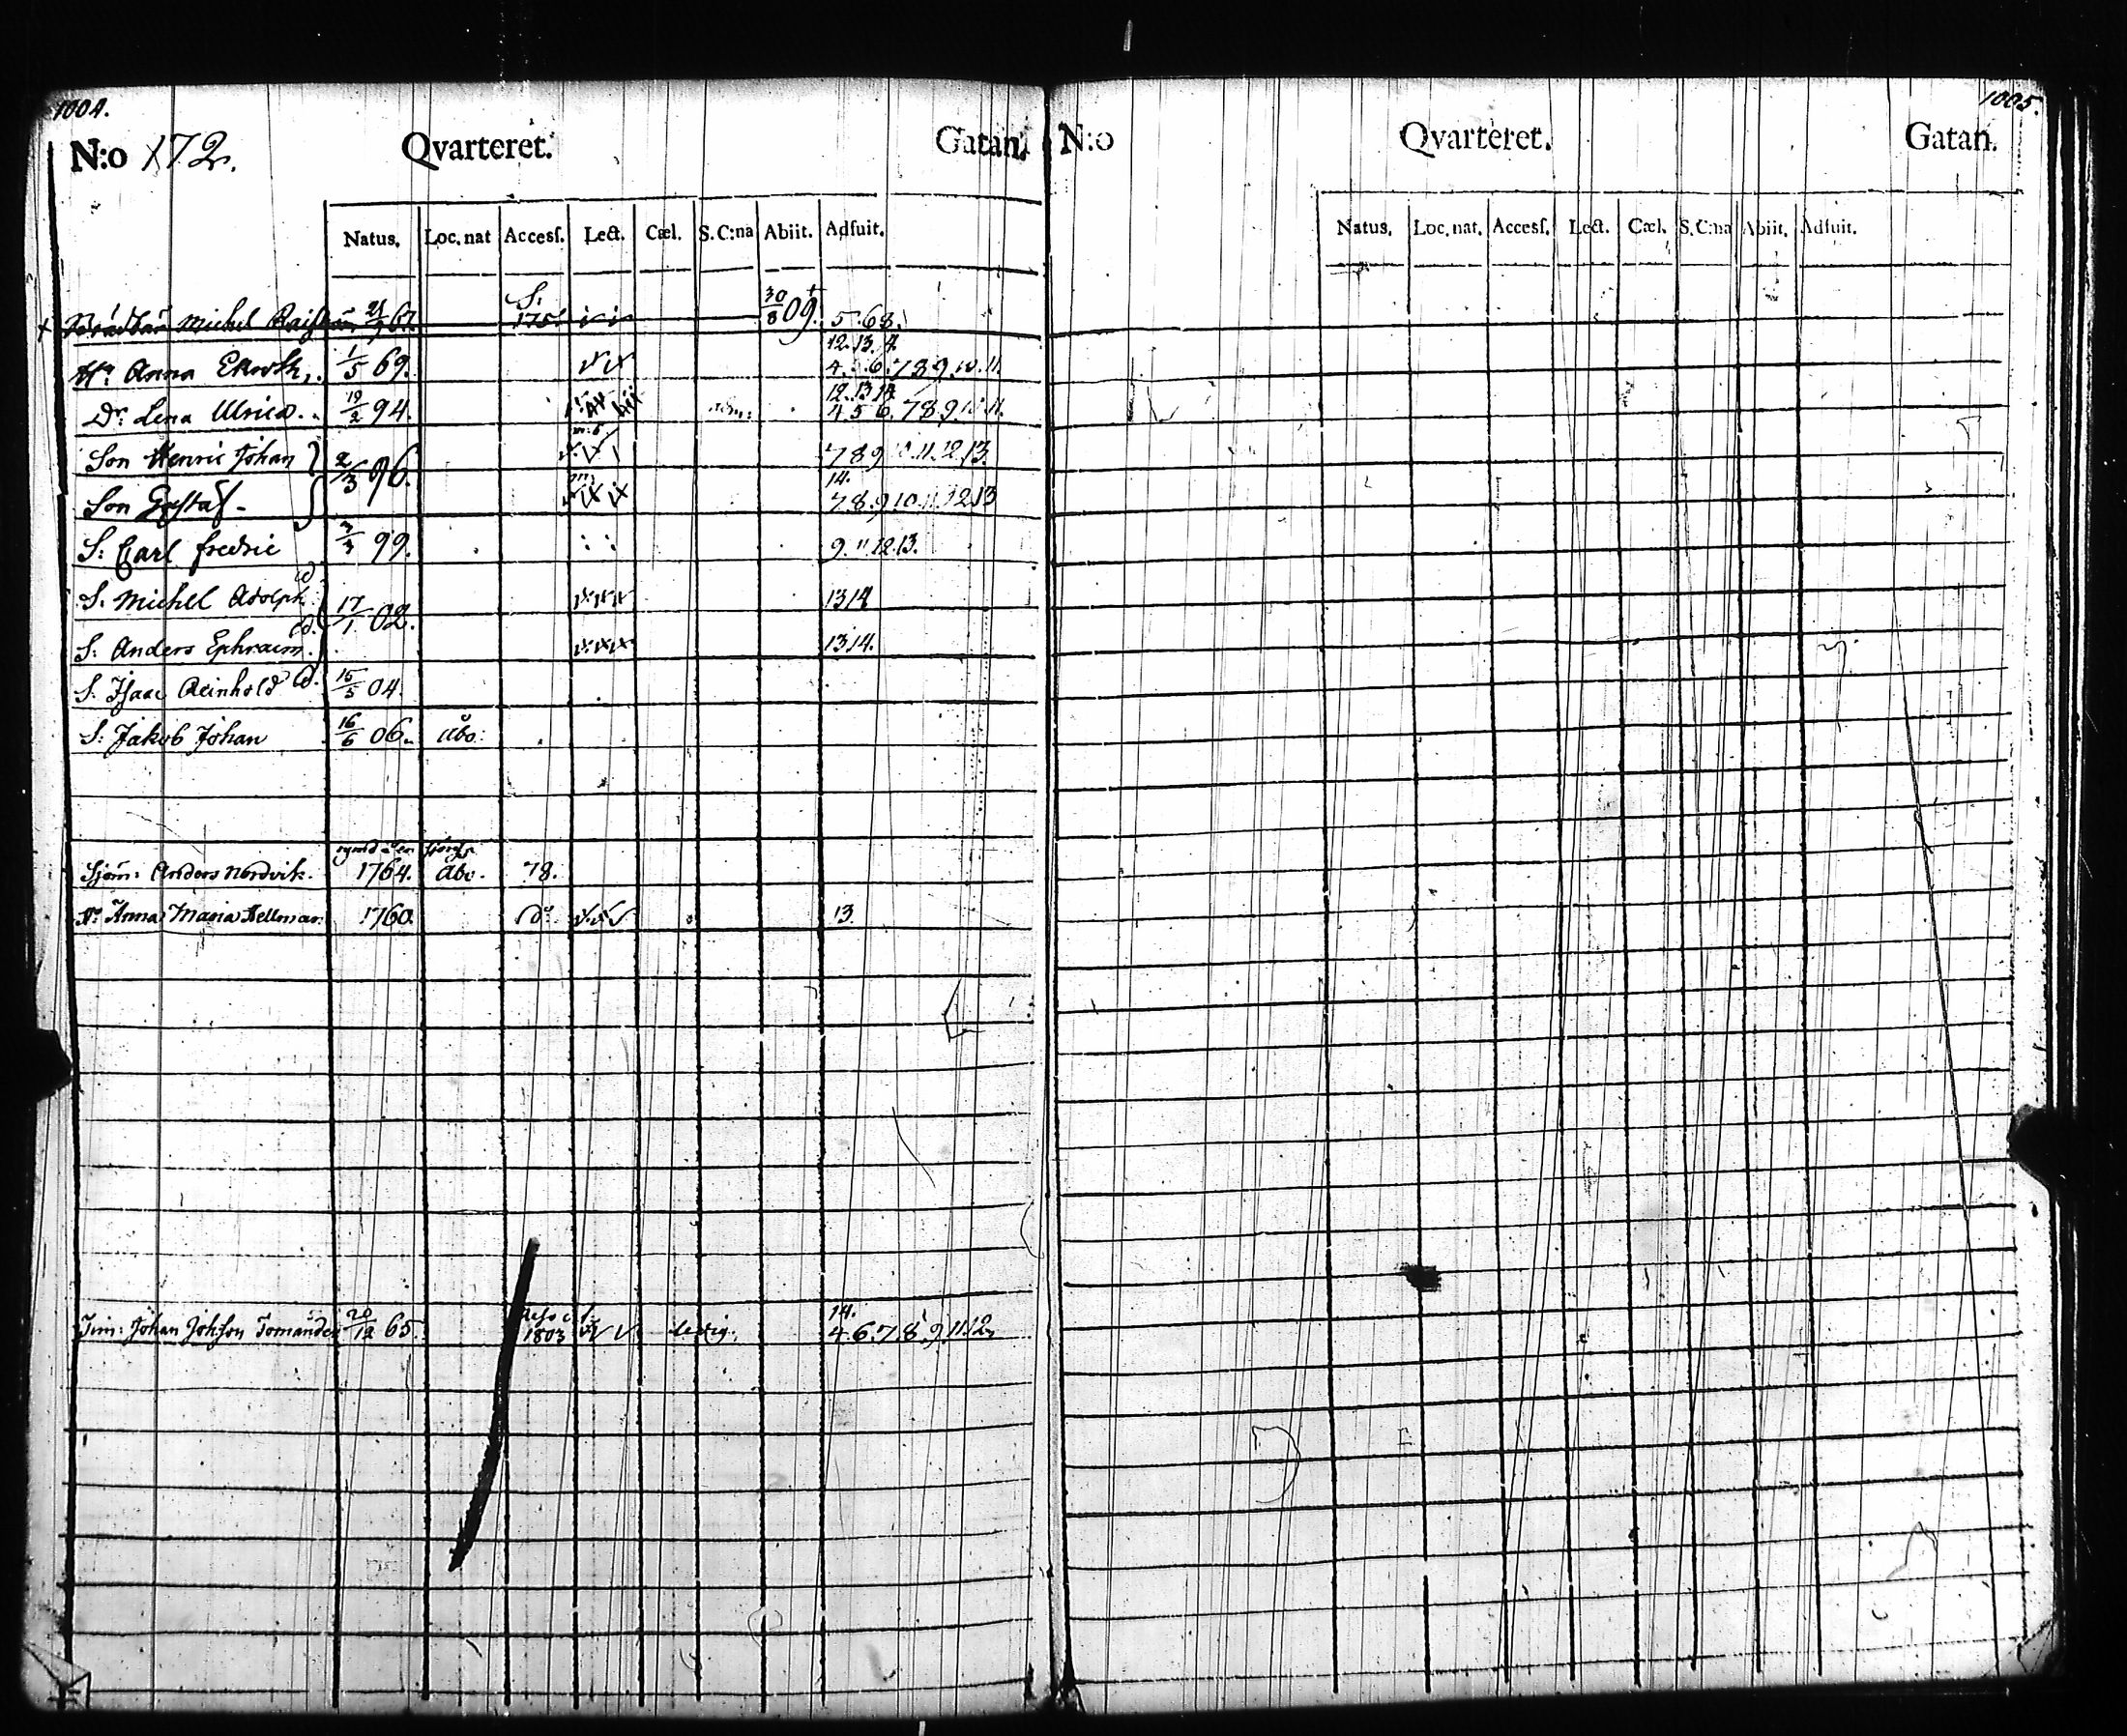 1004.
N:o 172. Qvarteret. Gatan.
Natus. Loc. nat Accesſ. Lect. Cæl. S. C:na Abiit. Adfuit.
S.
+ Michel 21 67. 175 30/8 09. + 5. 6 8.
12. 13. 4.
Hu Anna Ekroth. 1/5 69. 4. 5. 6. 7 8 9. 10. 11.
12. 13 14
Dr Lena Ulrica. 19/2 94. adm: 4 5 6. 7 8 9 10. 11.
Son Henric Johan 2/3 96. 7 8 9 10. 11. 12. 13.
14.
Son Gustaf 7. 8. 9 10. 11. 12 13
S: Carl fredric 3/3 99. 9. 11 12. 13.
S. Michel Adolph d. 17/1 02. 13 14
S: Anders Ephraim. d. 13 14.
S. Isaac Reinhold d. 15/5 04.
S: Jakob Johan 16/6 06. åbo:
Sjöm: Anders Nordvik. 1764. Åbo. 78.
Hu Anna Maria Hellman 1760. do 13.
14.
Johan Johſson Tomander 20/12 65. 1803 ledig. 4. 6. 7. 8. 9. 11. 12.
1005.
N:o Qvarteret. Gatan.
Natus. Loc. nat. Accesſ. Lect. Cæl. S. C:na Abiit. Adfuit.